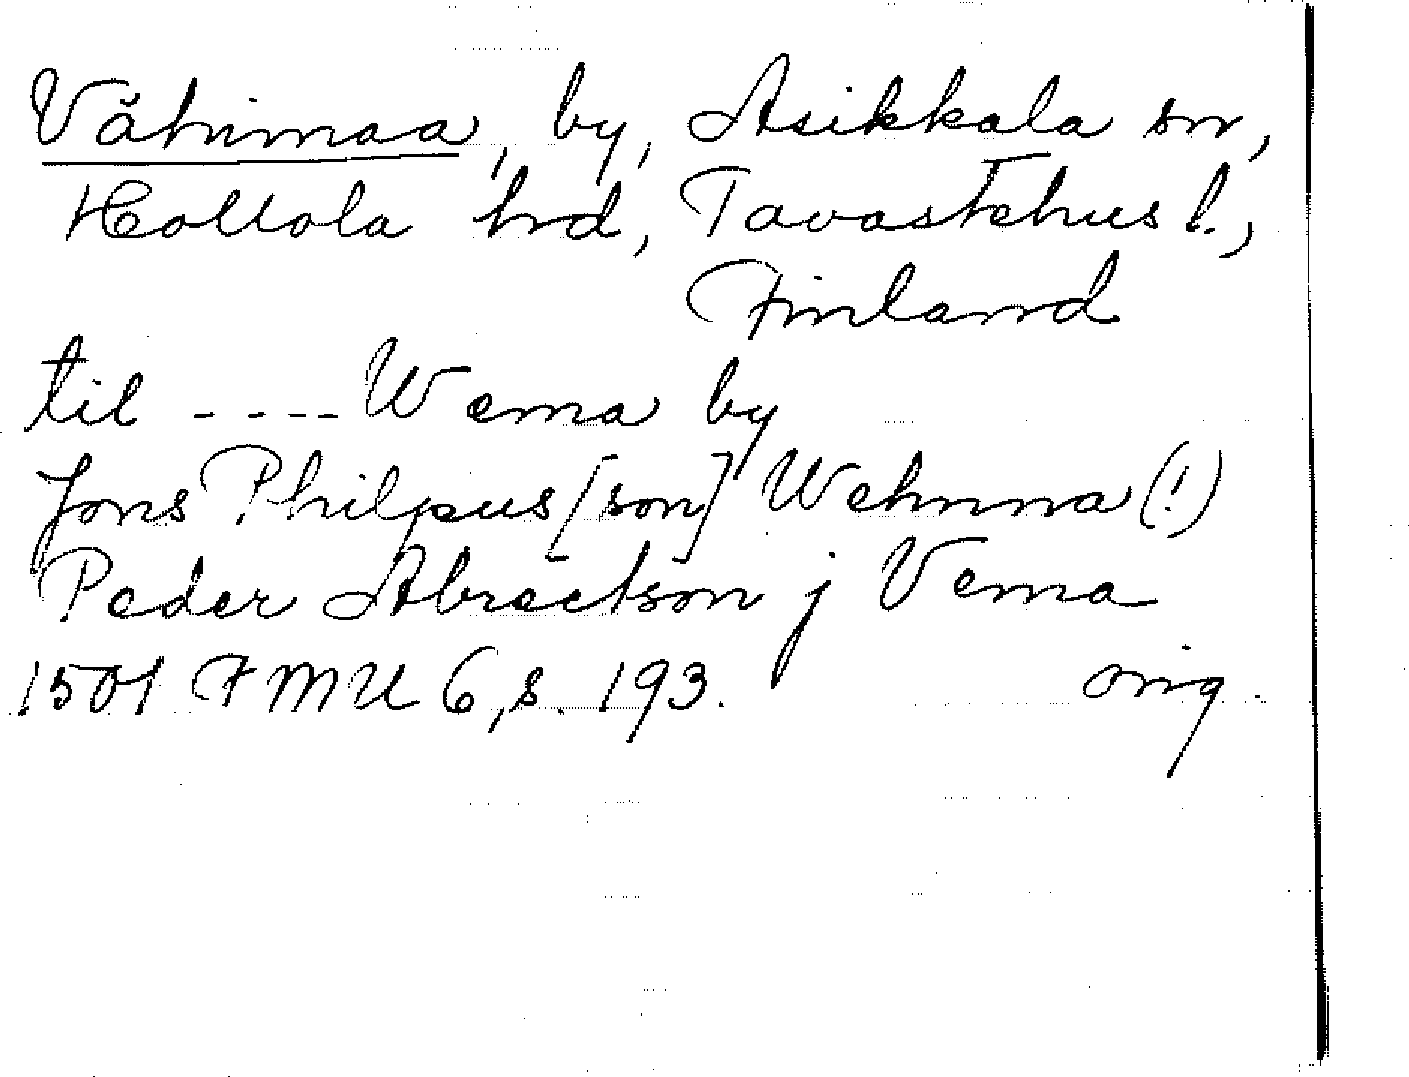 Vähimaa, by, Asikkala sn,
Hollola hrd, Tavastehus l.,
Finland
til ---- Wema by
Jons Philpus [son] Wehnna (!)
Peder Abraetson j Vema
1501 FMU 6, s. 193. orig.